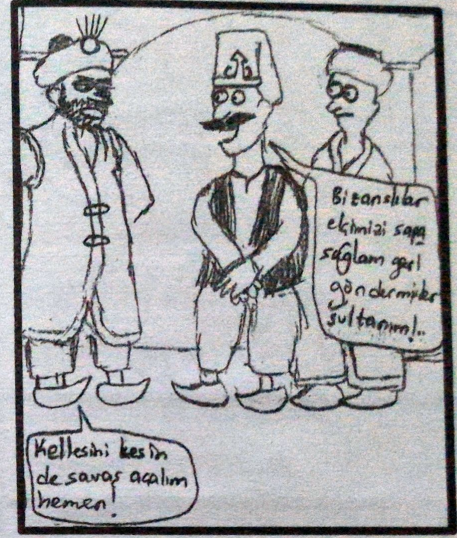 Bizanslılar
elçimizi sapa
sağlam geri
göndermişler
sultanım!..
Kellesini kesin
de savaş açalım
hemen!